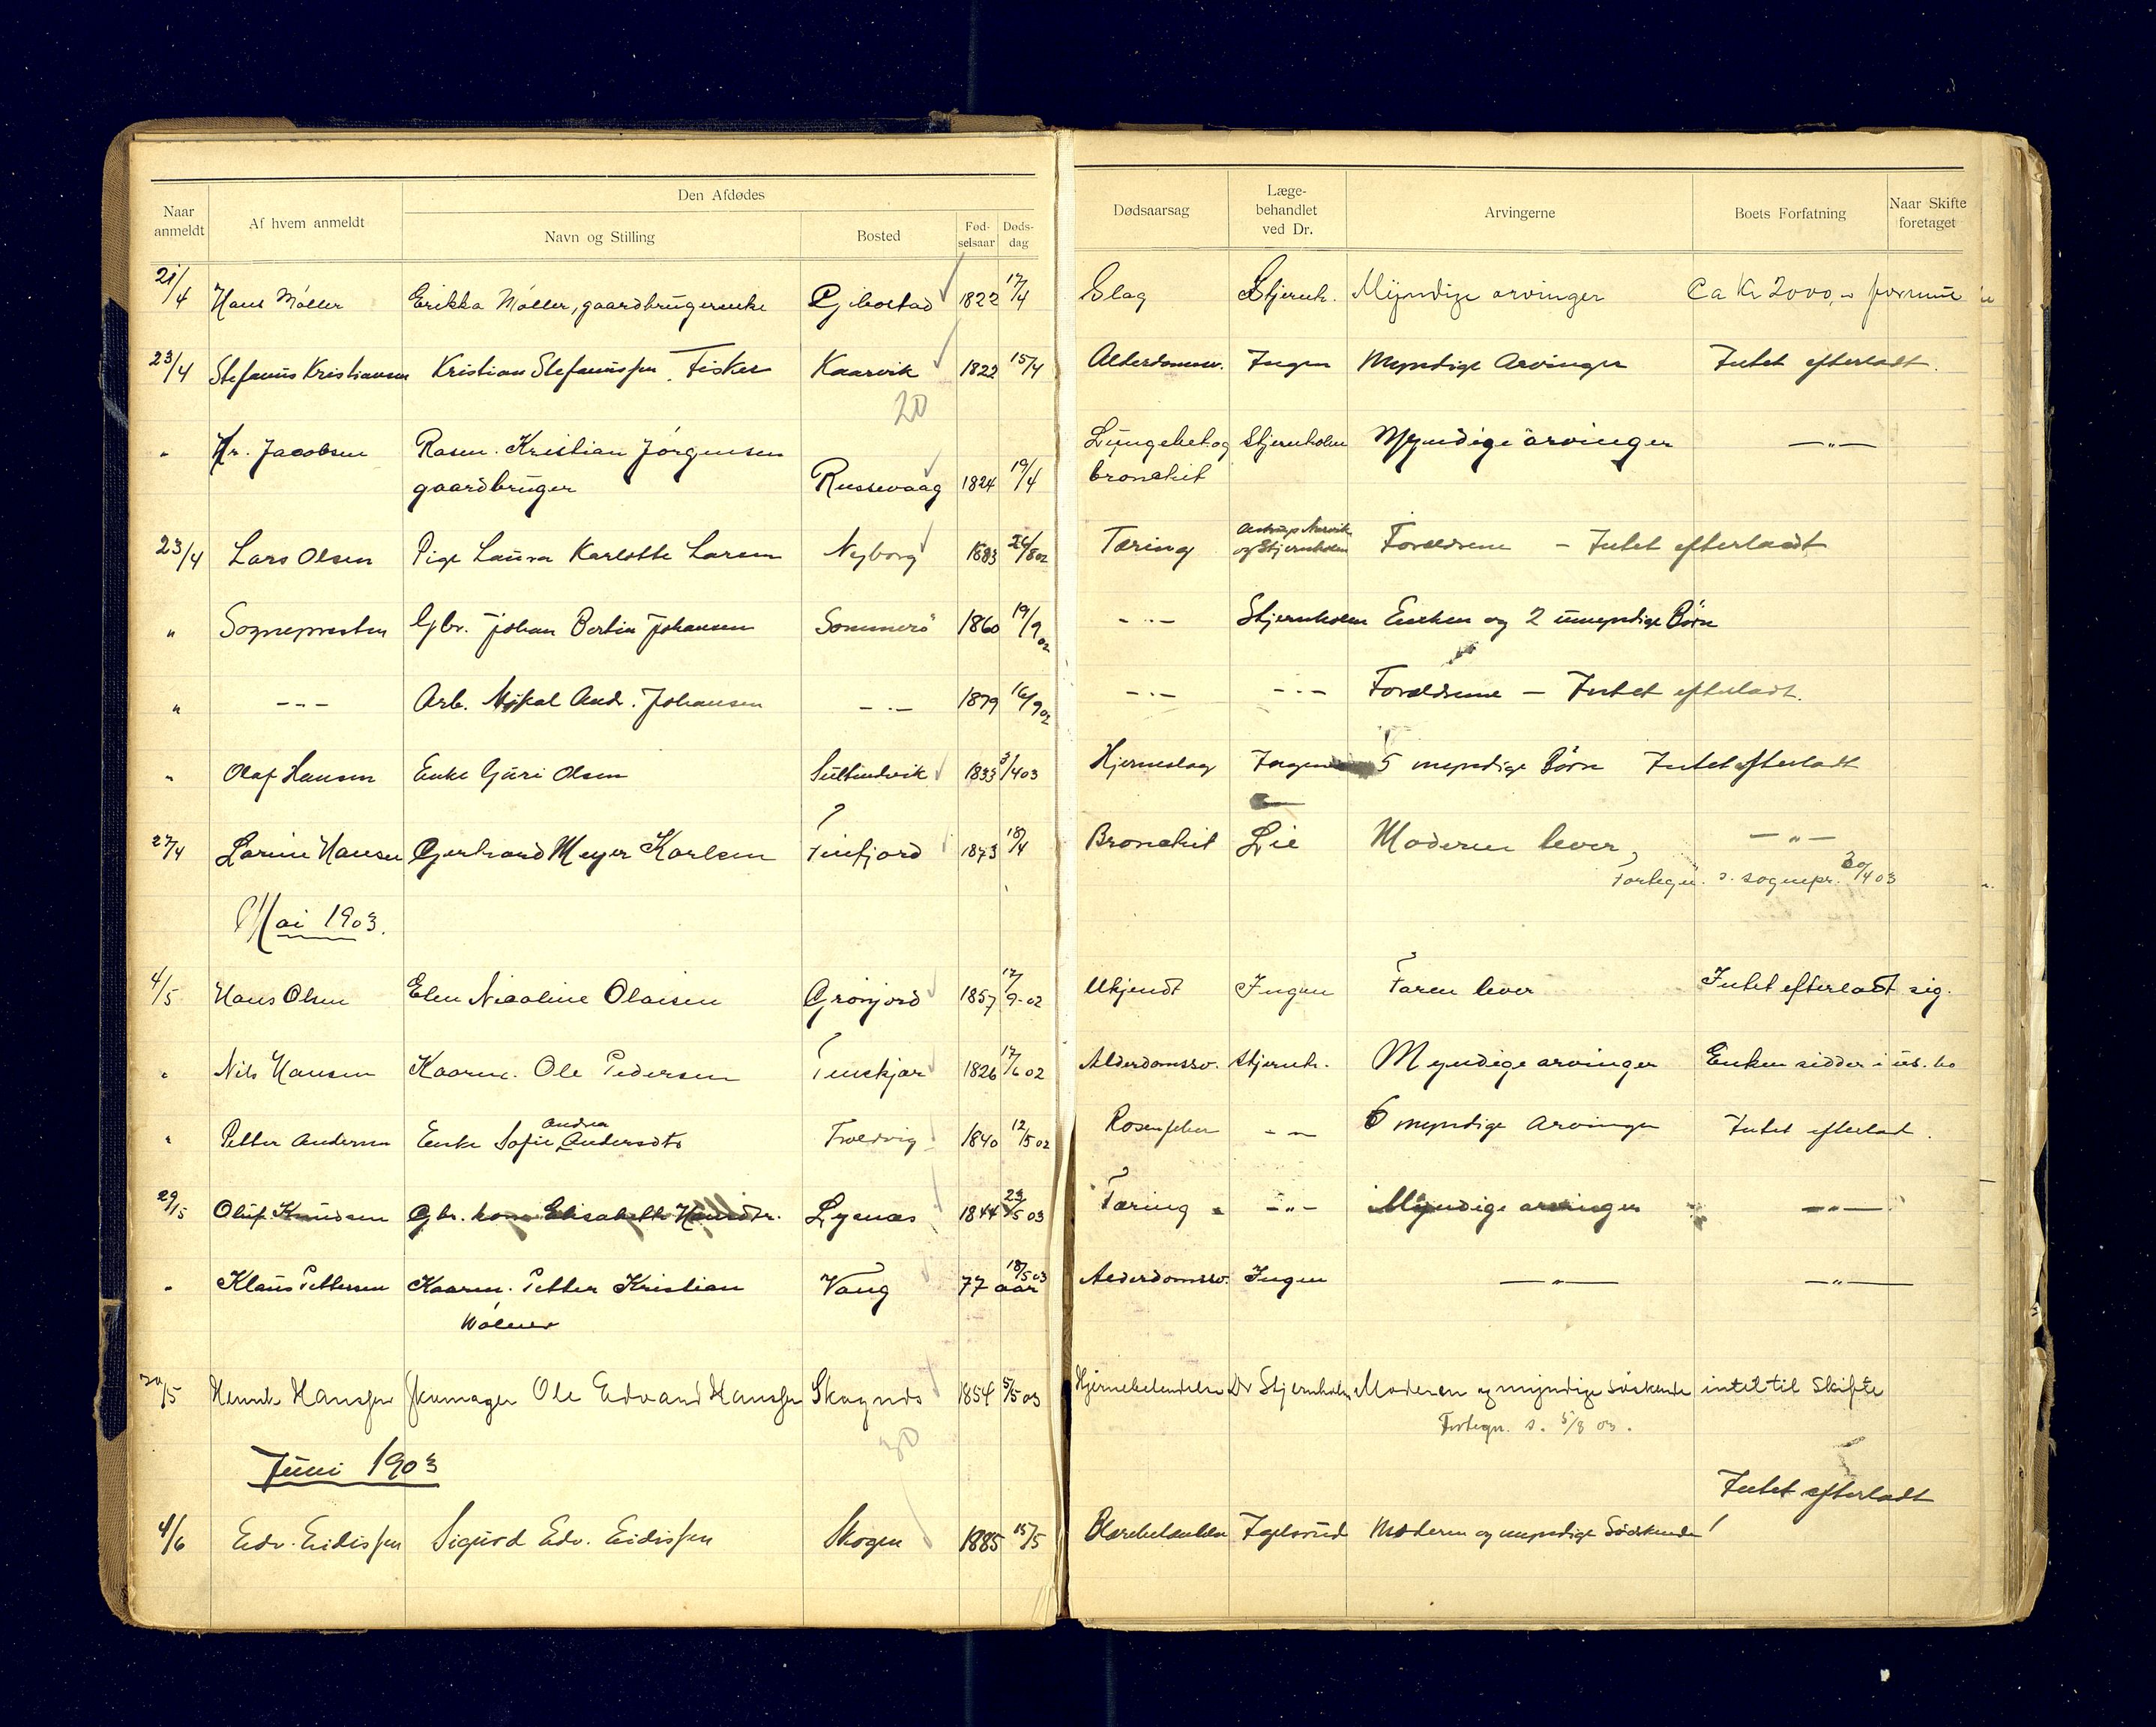 Naar anmeldt | Af hvem anmeldt | Den Afdødes | Navn og Stilling | Bosted | Fød-selsaar | Døds-dag | Dødsaarsag | Læge-behandlet ved Dr. | Arvingerne | Boets Forfatning | Naar Skifte foretaget
21/4 Hans Møller Erikka Møller, gaardbrugerenke Gibostad 1822 17/4 Slag Stjernh. Myndige arvinger Ca Kr 2000,-
23/4 Stefanus Kristiansen Kristian Stefanussen, Fisker Kaarvik 1822 15/4 Alderdomssv. Ingen Myndige Arvinger Intet efterladt.
20
" Kr. Jacobsen Kristian Jørgensen Lungebet. og Stjernholm Myndige arvinger —"—
gaardbruger Russevaag 1824 19/4 bronchit
23/4 Lars Olsen Pige Laura Karlotte Larsen Nyborg 1883 26/8 02 Tæring og Stjernholm Forældrene – Intet efterladt
" Sognepresten Gbr. Johan Bertin Johansen Sommerø 1860 19/9 02 -"- Stjernholm Enken og 2 umyndige Børn
" -"- Arb. Mikal Andr. Johansen -"- 1879 16/9 02 -"- -"- Forældrene – Intet efterladt.
" Olaf Hansen Enke Guri Olsen Sultindvik 1833 3/4 03 Hjerneslag Ingen 5 myndige Børn Intet efterladt
27/4 Larine Hansen Gerhard Meyer Karlsen Tinfjord 1873 18/4 Bronchit Lie Moderen lever, —"—
Fortegn. s. sognepr. 30/4 03
Mai 1903.
4/5 Hans Olsen Elen Nicoline Olaisen Grønjord 1857 17/9-02 Ukjendt Ingen Faren lever Intet efterladt sig.
" Nils Hansen Kaarm. Ole Pedersen Tennskjær 1826 17/6 02 Alderdomssv. Stjernh. Myndige arvinger Enken sidder i us. bo
Andrea
" Petter Andersen Enke Sofie Andersdtr Trældvig 1840 12/5 02 Rosenfeber -"- 6 myndige Arvinger Intet efterlad.
29/5 Oluf Knudsen Gbr. kone Elisabeth Hansdtr. Lysnæs 1844 23/5 03 Tæring -"- Myndige arvinger —"—
" Klaus Pettersen Kaarm. Petter Kristian Vang 77 aar 18/5 03 Alderdomssv. Ingen —"— —"—
30/5 Henrik Hanssen skomager Ole Edvard Hanssen Skognæs 1854 5/5 03 Hjernebetændelse Dr Stjernholm Moderen og myndige søskende intet til Skifte
Fortegn. s. 5/8 03.
30
Juni 1903
Intet efterladt
4/6 Edv. Eidissen Sigurd Edv. Eidissen Skogen 1885 15/5 Moderen og myndige Sødskende!